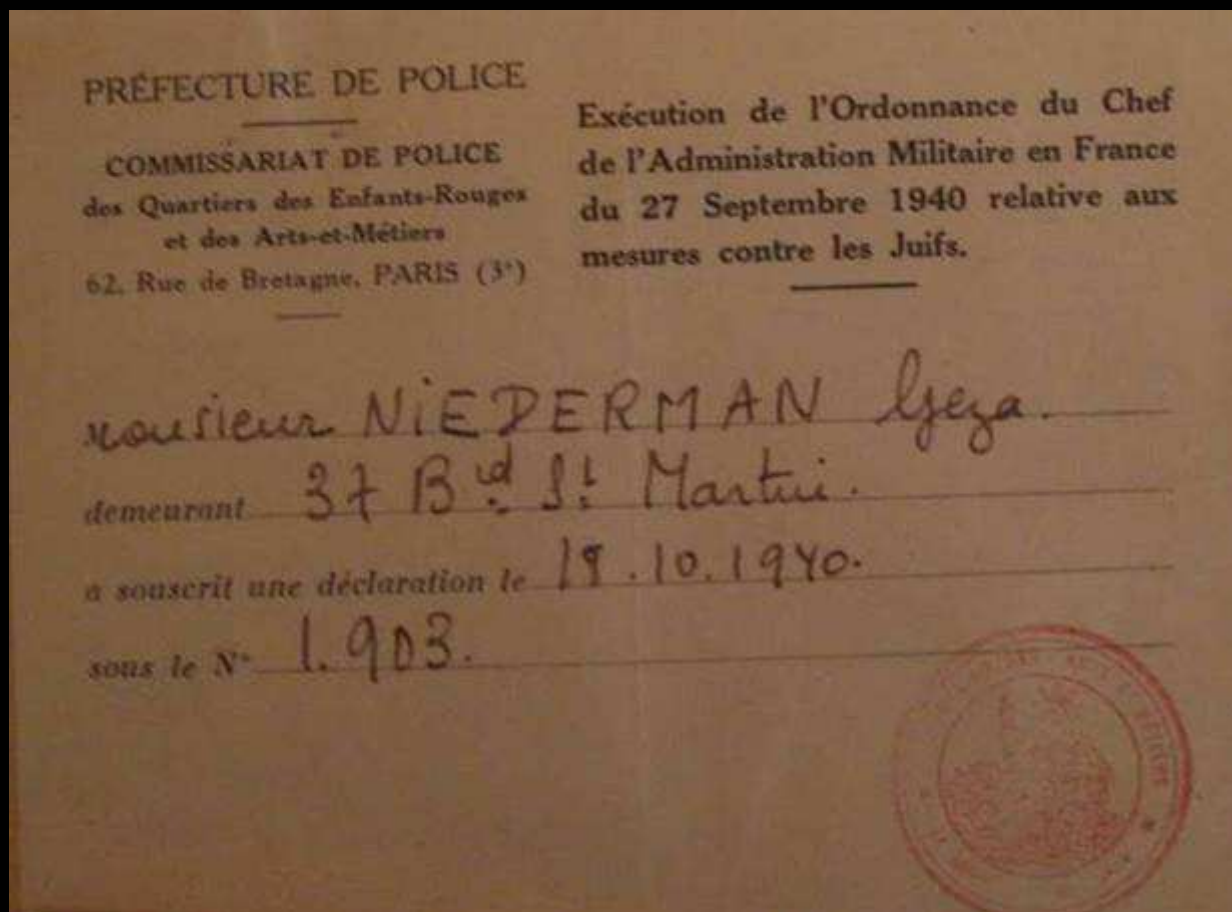 PRÉFECTURE DE POLICE
COMMISSARIAT DE POLICE
des Quartiers des Enfants-Rouges
et des Arts-et-Métiers
62, Rue de Bretagne, PARIS (3ᵉ)
Exécution de l'Ordonnance du Chef
de l'Administration Militaire en France
du 27 Septembre 1940 relative aux
mesures contre les Juifs.
Monsieur NiEDERMAN Geza.
demeurant 37 Bᵈ Sᵗ Martin.
a souscrit une déclaration le 19.10.1940.
sous le N° 1.903.